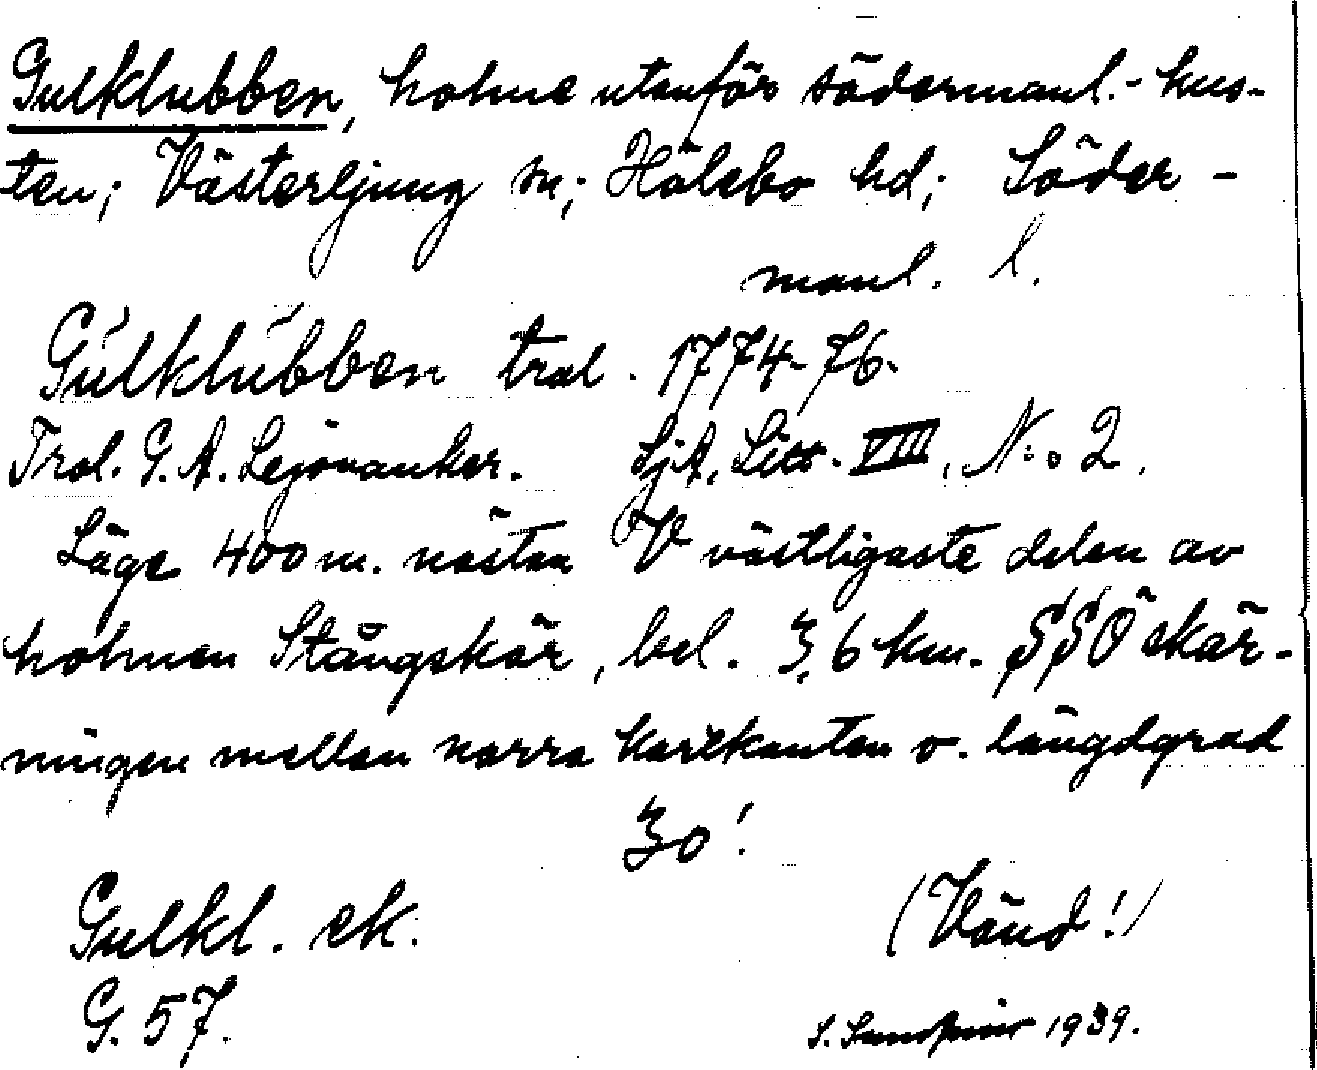 Gulklubben, holme utanför södermanl.-kus-
ten; Västerljung sn; Hölebo hd; Söder-
manl. l.
Gulklubben tral. 1774-76.
Tral. G. A. Lejonanker. SjA, Litt. VIII, No 2.
Läge 400 m. nästan V västligaste delen av
holmen Stångskär, bel. 3,6 km. SSÖ skär-
ningen mellan norra kartkanten o. längdgrad
30'.
Gulkl. ek.
G. 57.
(Vänd!)
S. 1939.